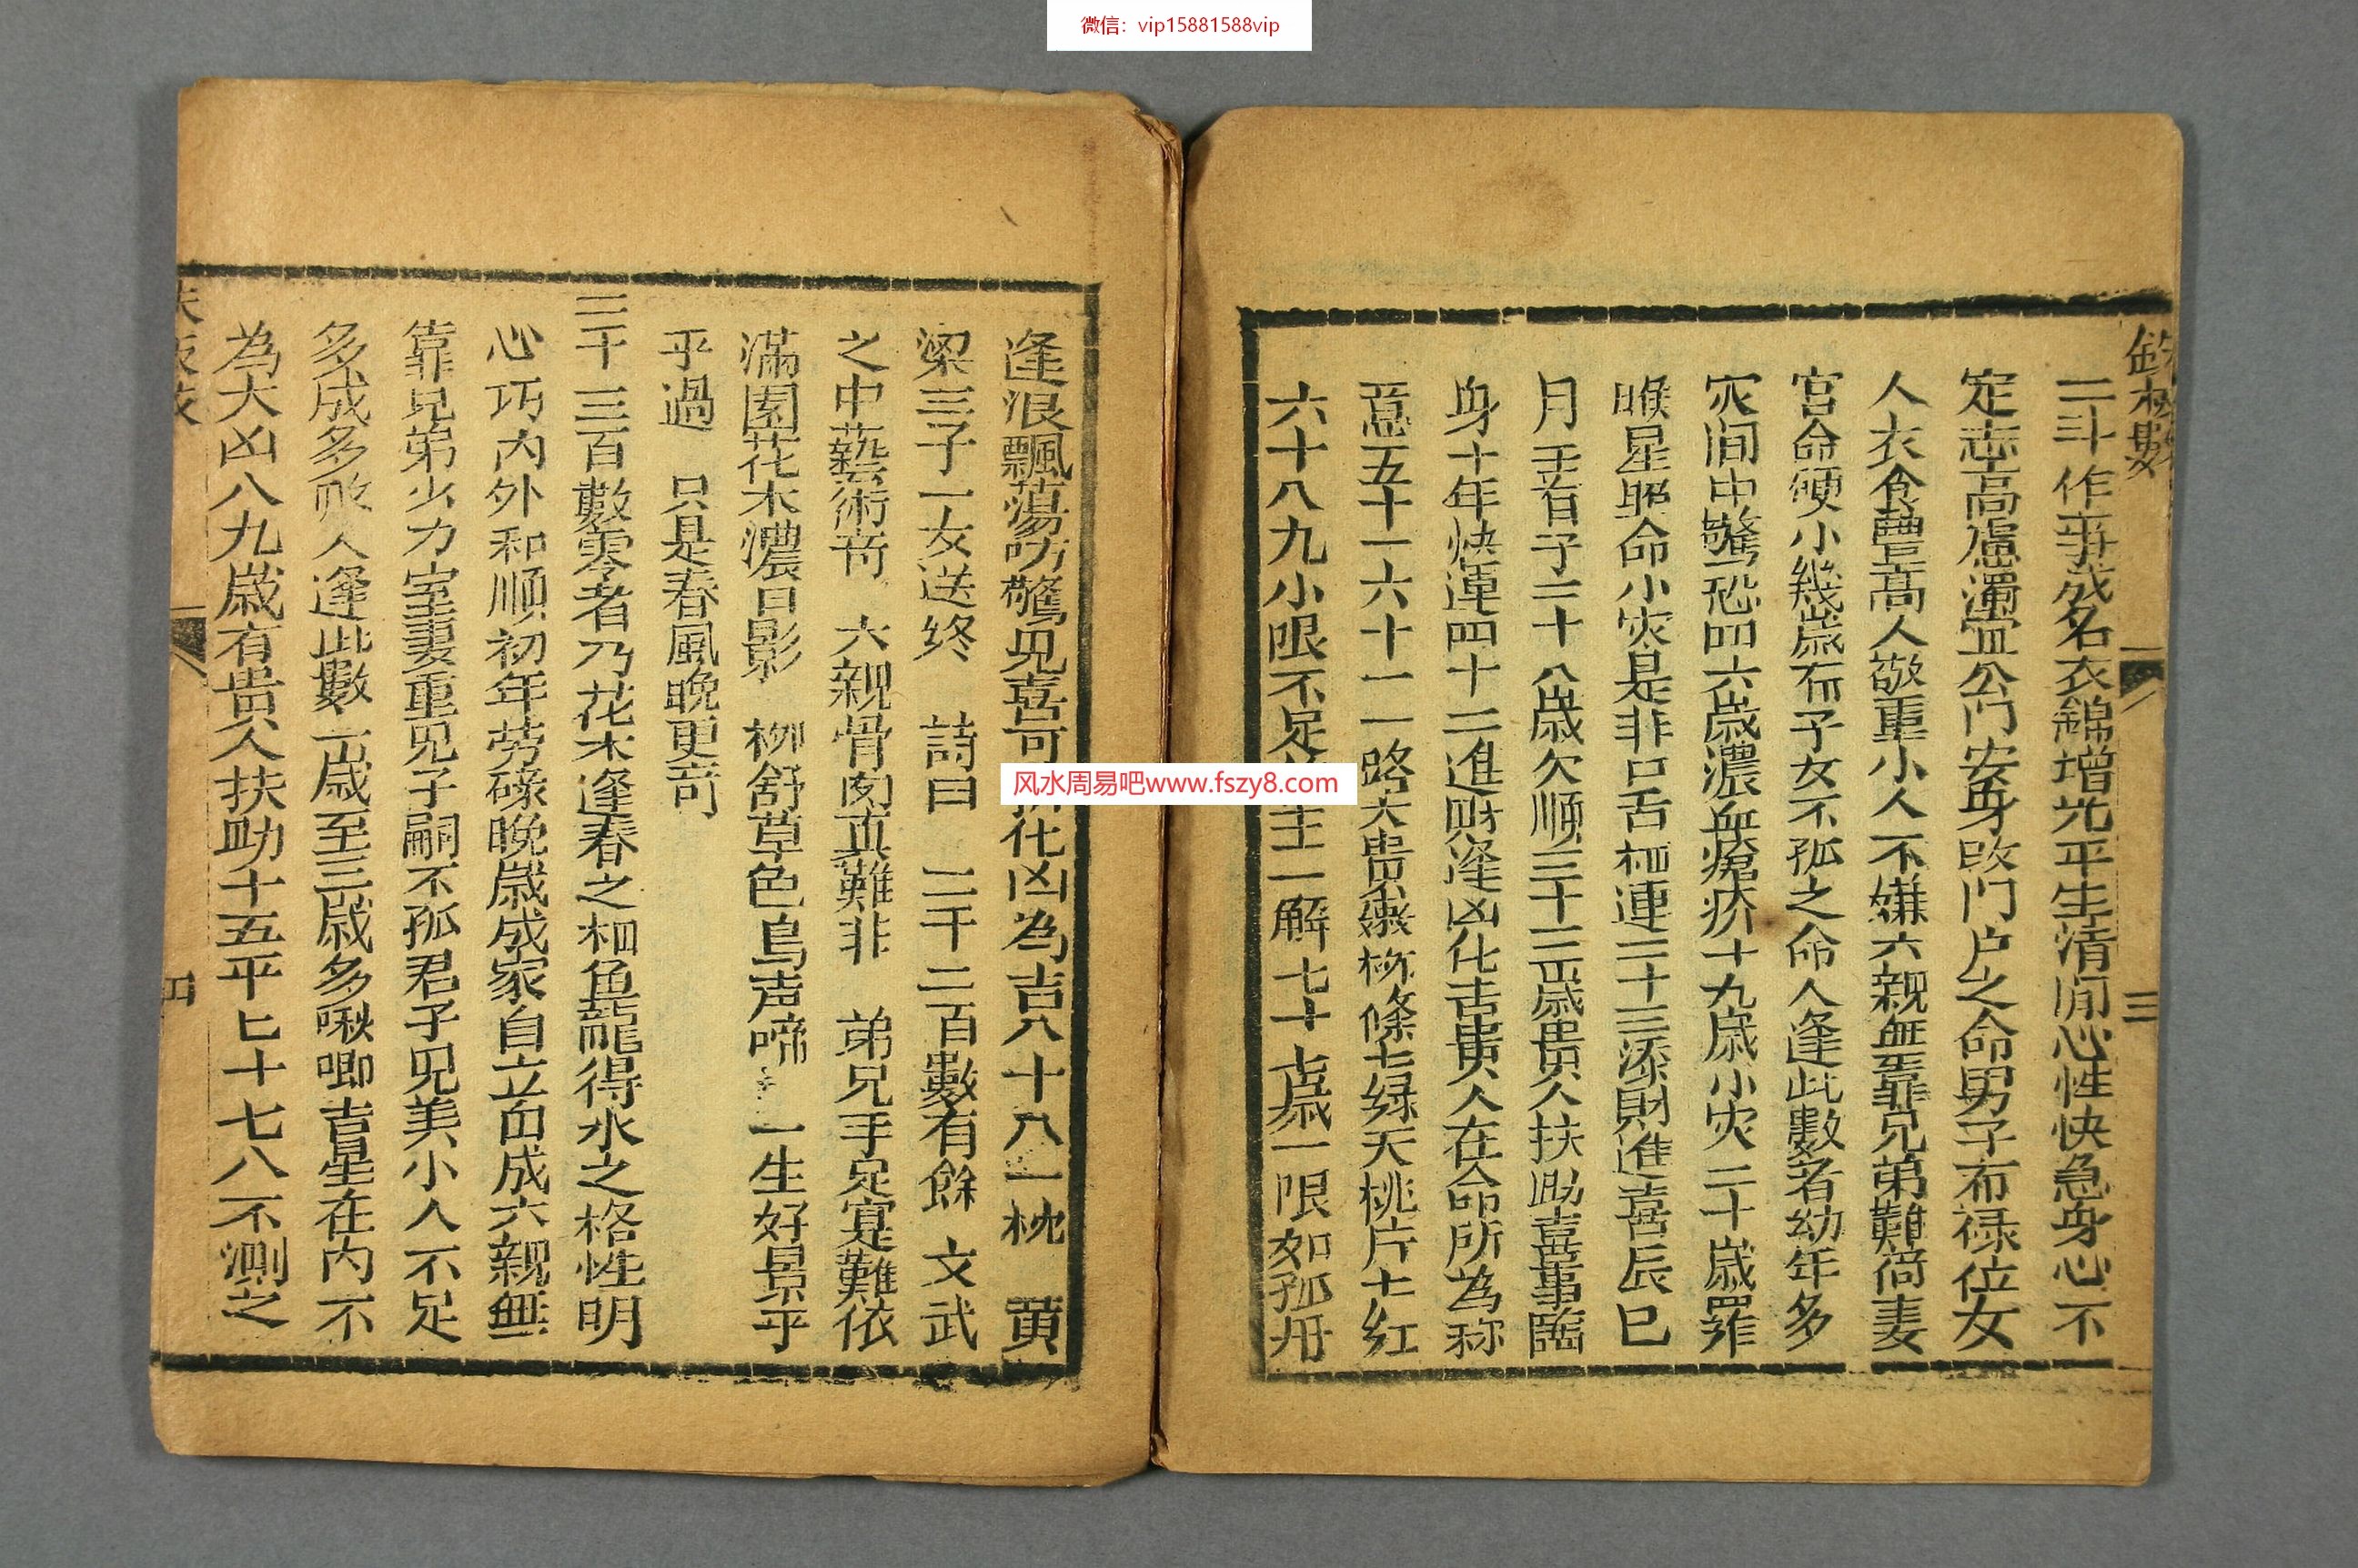 微信：vip15881588vip
鉄板數
三
二斗作事成名衣錦增光平生清閒心性快急身心不
定志高慮濁宜公門安身改門户之命男子布禄位女
人衣食豐高人敬重小人不嫌六親無靠兄弟難倚妻
宮命硬小幾歲有子女不孤之命人逢此數者幼年多
灾间中驚恐四六歲濃血瘡疾十九歲小灾二十歲羅
睺星照命小灾是非口舌相連二十三添財進喜辰巳
月壬首子二十八歲欠順三十二三歲貴人扶助喜事臨
身十年快運四十二進財逢凶化吉貴人在命所為称
意五十一六十一一路大貴嫩柳條七绿天桃片七红
六十八九小限不足主一解七十七歲一限如孤舟
逢浪飄蕩防驚見喜可化凶為吉八十八一枕 黄
梁三子一女送终 詩曰 二千二百數有餘 文武
之中藝術奇 六親骨肉真難非 弟兄手足寔難依
滿園花木濃日影 柳舒草色鳥声啼 一生好景乎
乎過 只是春風晚更奇
二千三百數零者乃花木逢春之相魚龍得水之格性明
心巧内外和順初年劳碌晚歲成家自立而成六親無
靠兄弟少力室妻重見子嗣不孤君子見美小人不足
多成多敗人逢此數一歲至三歲多啾唧吉星在内不
為大凶八九歲有貴人扶助十五平匕十七八不測之
四
风水周易吧www.fszy8.com